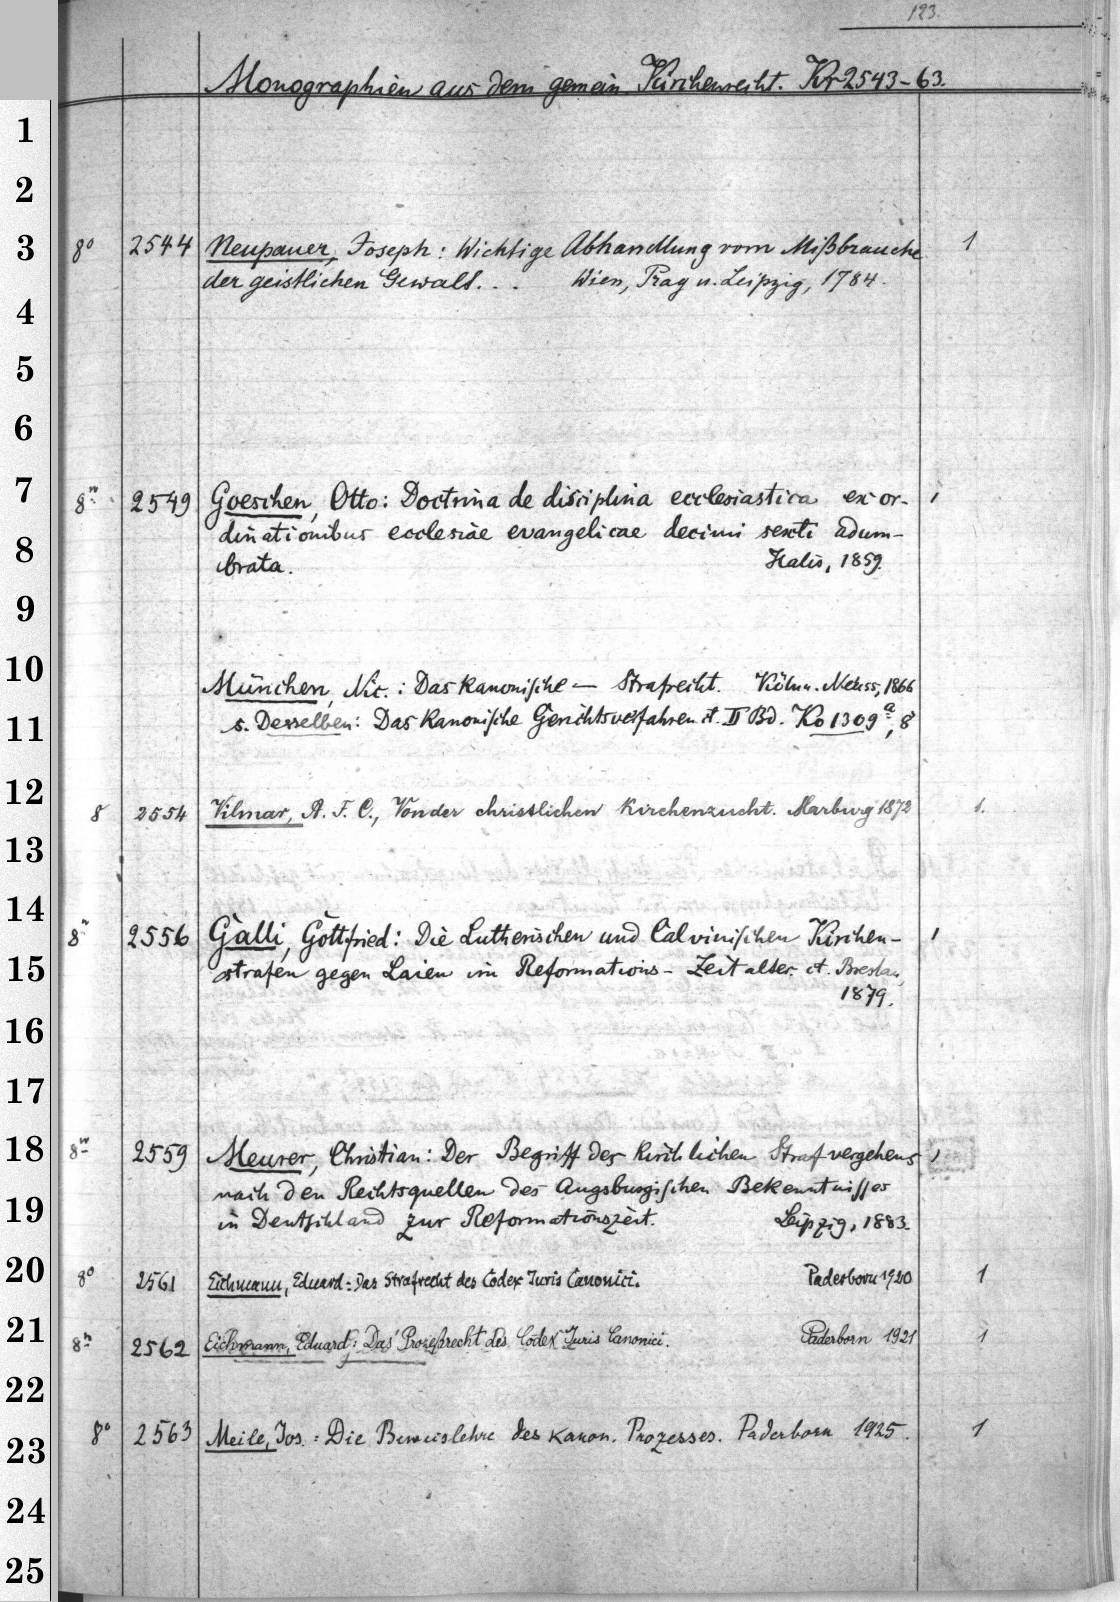 123.
Monographien aus dem gemein Kirchenrecht. Kr 2543-63.
1
2
3 8° 2544 Neupauer, Joseph: Wichtige Abhandlung vom Mißbrauche 1
der geistlichen Gewalt... Wien, Prag u. Leipzig, 1784.
4
5
6
7 8° 2549 Goeschen, Otto: Doctrina de disciplina ecclesiastica ex or-
8 dinationibus ecclesiae evangelicae decimi sexti adum-
brata. Halis, 1859.
9
10 München, Nic.: Das kanonische — Strafrecht. Köln u. Neuss, 1866
11 s. Desselben: Das kanonische Gerichtsverfahren et. II Bd. Ko 1309ª, 8
12 8 2554 Vilmar, A. F. C., Von der christlichen Kirchenzucht. Marburg 1872 1.
13
14 8 2556 Galli, Gottfried: Die Lutherischen und Calvinischen Kirchen-
15 strafen gegen Laien im Reformations-Zeitalter. et. Breslau,
1879.
16
17
18 8 2559 Meurer, Christian: Der Begriff des kirchlichen Strafvergehens
nach den Rechtsquellen des Augsburgischen Bekenntnisses
19 in Deutschland zur Reformationszeit. Leipzig, 1883.
20 8° 2561 Eichmann, Eduard: Das Strafrecht des Codex Juris Canonici. Paderborn 1920 1
21 8 2562 Eichmann, Eduard: Das Prozeßrecht des Codex Juris Canonici. Paderborn 1921 1
22
23 8° 2563 Meile, Jos.: Die Beweislehre des kanon. Prozesses. Paderborn 1925. 1
24
25